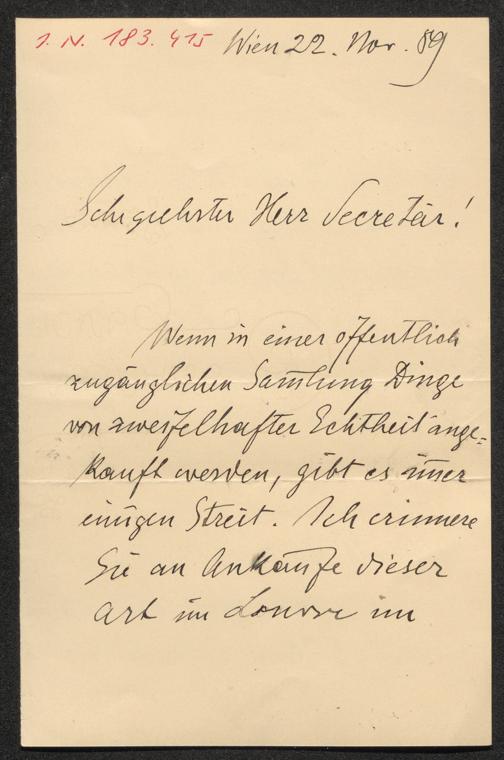 I. N. 183.415 Wien 22. Nov. 89
Sehr geehrter Herr Secretär!
Wenn in einer öffentlich
zugänglichen Sam̅lung Dinge
von zweifelhafter Echtheit ange=
kauft werden, gibt es im̅er
einigen Streit. Ich erinnere
Sie an Ankäufe dieser
Art im Louvre im